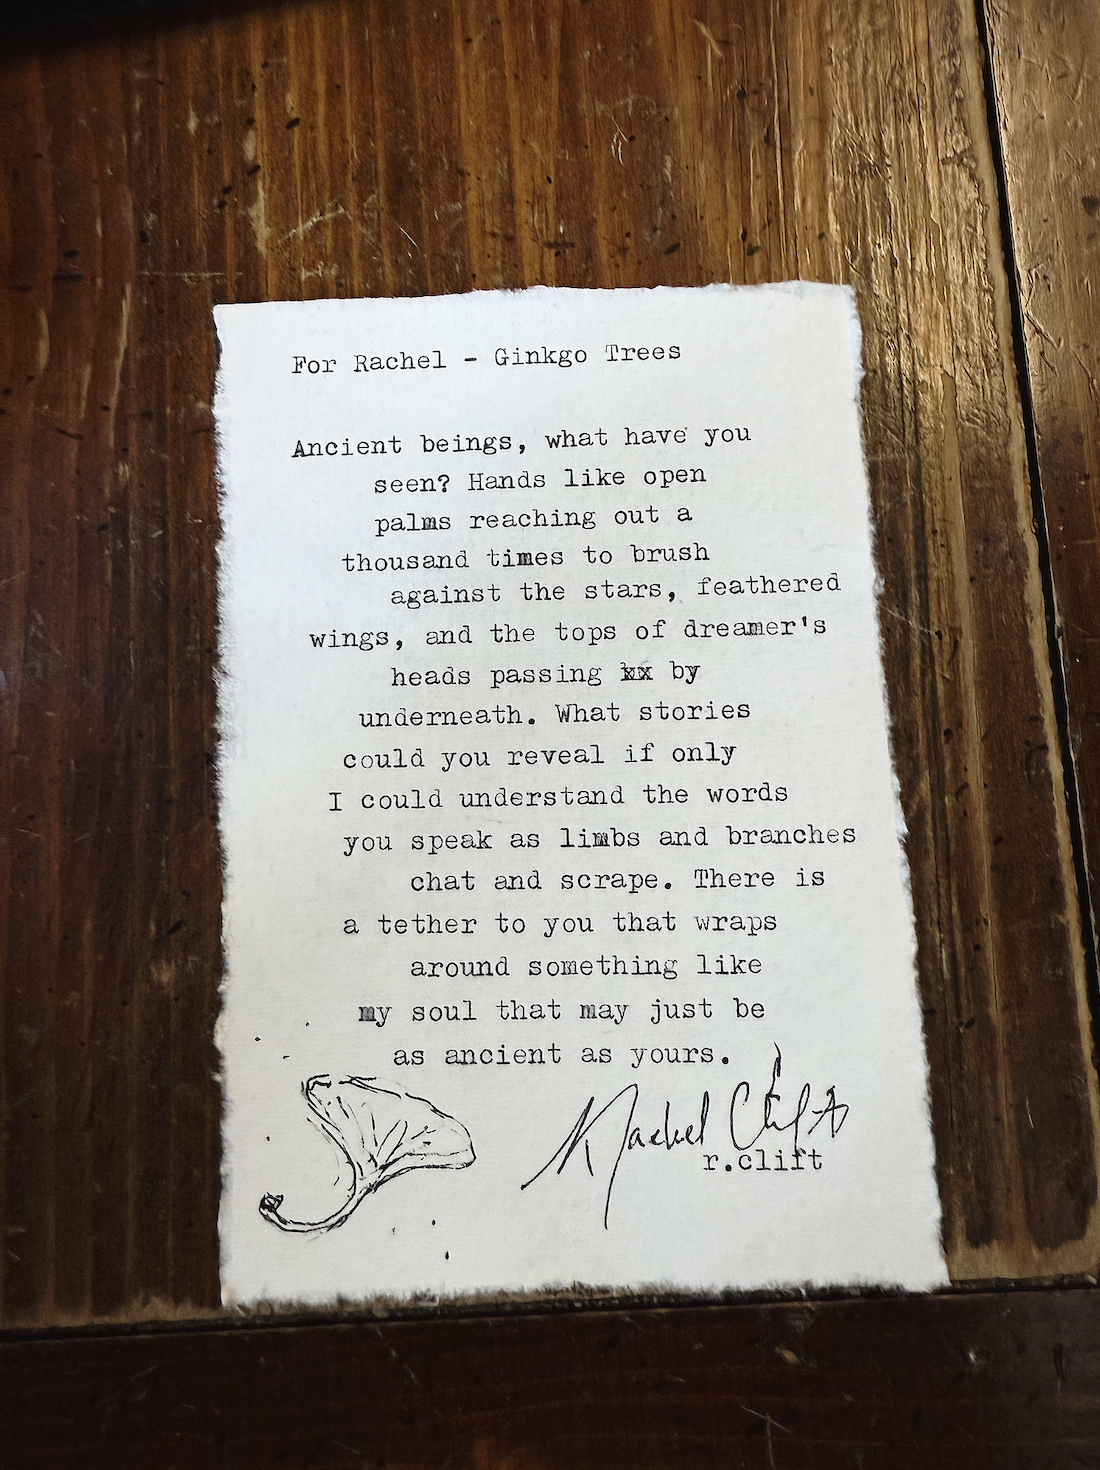 For Rachel - Ginkgo Trees
Ancient beings, what have you
seen? Hands like open
palms reaching out a
thousand times to brush
against the stars, feathered
wings, and the tops of dreamer's
heads passing xx by
underneath. What stories
could you reveal if only
I could understand the words
you speak as limbs and branches
chat and scrape. There is
a tether to you that wraps
around something like
my soul that may just be
as ancient as yours.
Rachel Clift
r.clift